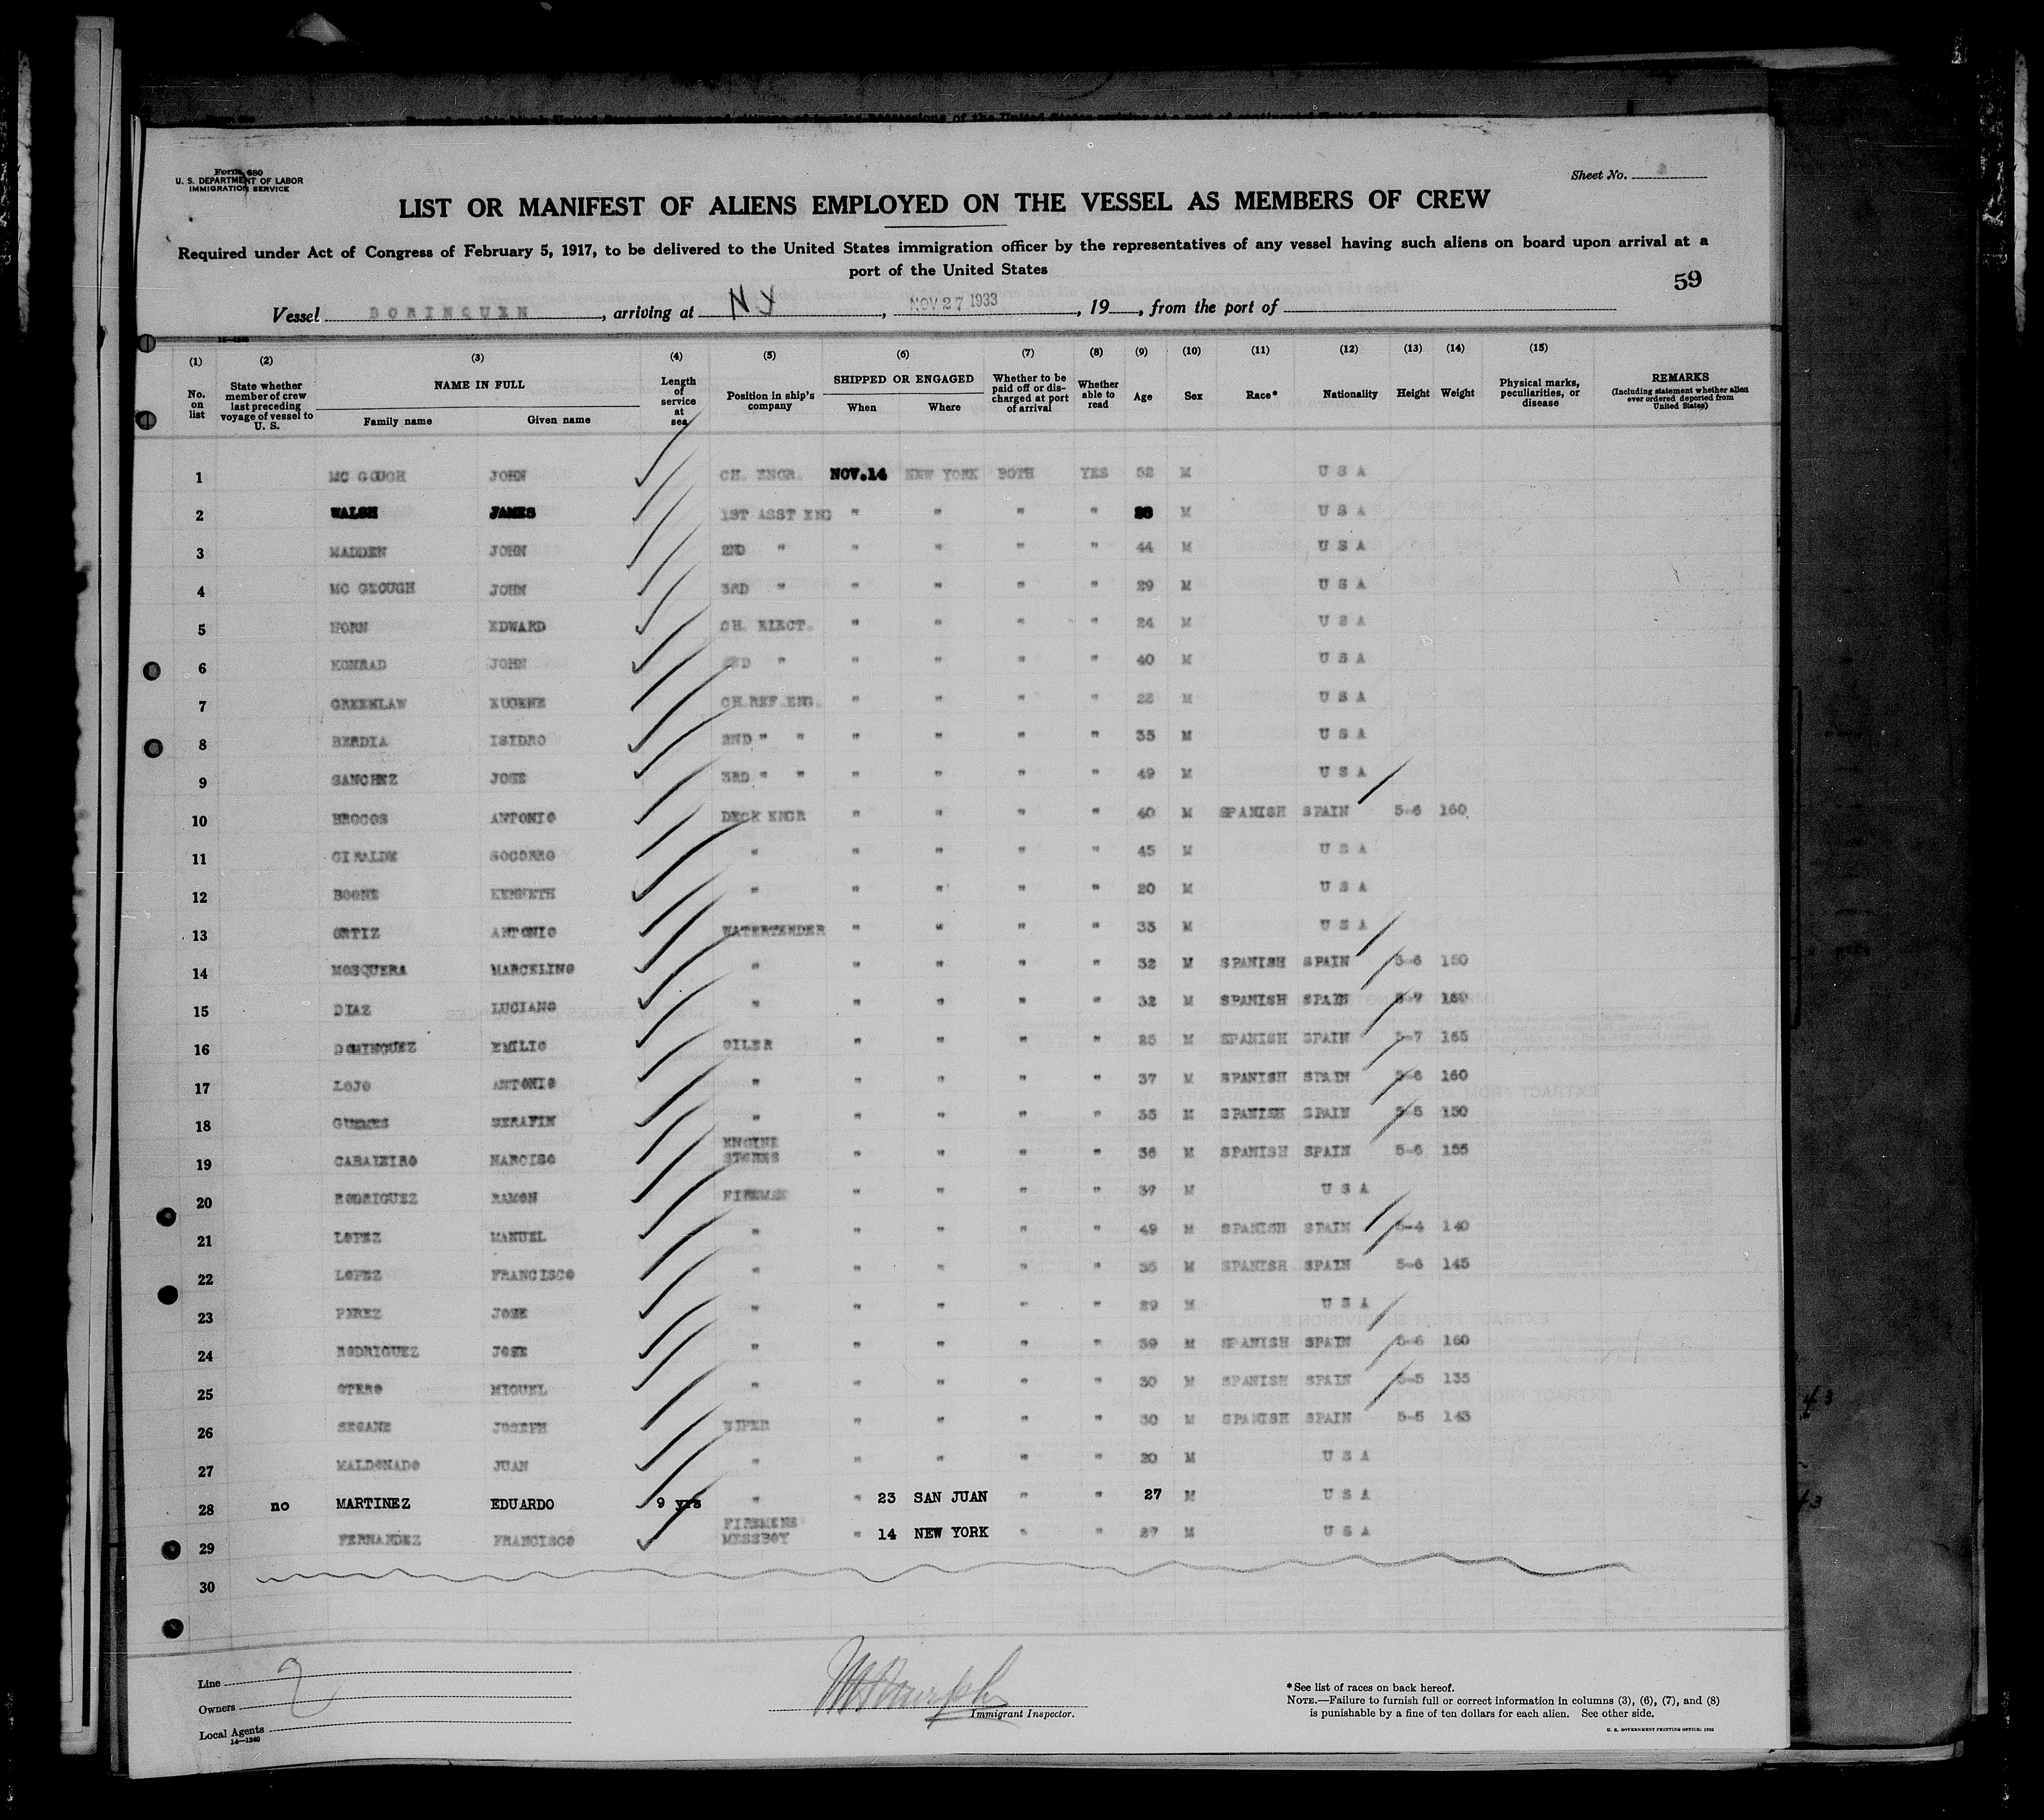 Form 680
U. S. DEPARTMENT OF LABOR
IMMIGRATION SERVICE
Sheet No.
LIST OR MANIFEST OF ALIENS EMPLOYED ON THE VESSEL AS MEMBERS OF CREW
Required under Act of Congress of February 5, 1917, to be delivered to the United States immigration officer by the representatives of any vessel having such aliens on board upon arrival at a
port of the United States
59
Vessel BORINQUEN, arriving at NY, NOV 27 1933, 19, from the port of
(1) (2) (3) (4) (5) (6) (7) (8) (9) (10) (11) (12) (13) (14) (15)
No. on list State whether member of crew last preceding voyage of vessel to U. S. NAME IN FULL Family name Given name Length of service at sea Position in ship's company SHIPPED OR ENGAGED When Where Whether to be paid off or discharged at port of arrival Whether able to read Age Sex Race* Nationality Height Weight Physical marks, peculiarities, or disease REMARKS (Including statement whether alien ever ordered deported from United States)
1 MC GOUGH JOHN CH. ENGR. NOV.14 NEW YORK BOTH YES 52 M U S A
2 WALSH JAMES 1ST ASST ENG " " " " M U S A
3 MADDEN JOHN 2ND " " " " " 44 M U S A
4 MC GEOUGH JOHN 3RD " " " " " 29 M U S A
5 HORN EDWARD CH. ELECT. " " " " 24 M U S A
6 KONRAD JOHN 2ND " " " " " 40 M U S A
7 GREENLAW EUGENE CH.REF.ENG. " " " " 22 M U S A
8 BERDIA ISIDRO 2ND " " " " " " 35 M U S A
9 SANCHEZ JOSE 3RD " " " " " " 49 M U S A
10 BROCOS ANTONIO DECK ENGR " " " " 40 M SPANISH SPAIN 5-6 160
11 GIRALDE SOCORRO " " " " " 45 M U S A
12 BOONE KENNETH " " " " " 20 M U S A
13 ORTIZ ANTONIO WATERTENDER " " " " 33 M U S A
14 MOSQUERA MARCELINO " " " " " 32 M SPANISH SPAIN 5-6 150
15 DIAZ LUCIANO " " " " " 32 M SPANISH SPAIN 5-7 160
16 DOMINGUEZ EMILIO OILER " " " " 25 M SPANISH SPAIN 5-7 165
17 LOJO ANTONIO " " " " " 37 M SPANISH SPAIN 5-6 160
18 GUEMES SERAFIN " " " " " 35 M SPANISH SPAIN 5-5 150
19 CABALEIRO NARCISO ENGINE STORES " " " " 36 M SPANISH SPAIN 5-6 155
20 RODRIGUEZ RAMON FIREMEN " " " " 37 M U S A
21 LOPEZ MANUEL " " " " " 49 M SPANISH SPAIN 5-4 140
22 LOPEZ FRANCISCO " " " " " 35 M SPANISH SPAIN 5-6 145
23 PEREZ JOSE " " " " " 29 M U S A
24 RODRIGUEZ JOSE " " " " " 39 M SPANISH SPAIN 5-6 160
25 OTERO MIGUEL " " " " " 30 M SPANISH SPAIN 5-5 135
26 SEOANE JOSEPH WIPER " " " " 30 M SPANISH SPAIN 5-5 143
27 MALDONADO JUAN " " " " " 20 M U S A
28 no MARTINEZ EDUARDO 9 yrs " " 23 SAN JUAN " " 27 M U S A
29 FERNANDEZ FRANCISCO FIREMENS MESSBOY " 14 NEW YORK " " 27 M U S A
30
Line
2
Owners
Local Agents
14—1240
Immigrant Inspector.
*See list of races on back hereof.
NOTE.—Failure to furnish full or correct information in columns (3), (6), (7), and (8)
is punishable by a fine of ten dollars for each alien. See other side.
U. S. GOVERNMENT PRINTING OFFICE: 1932